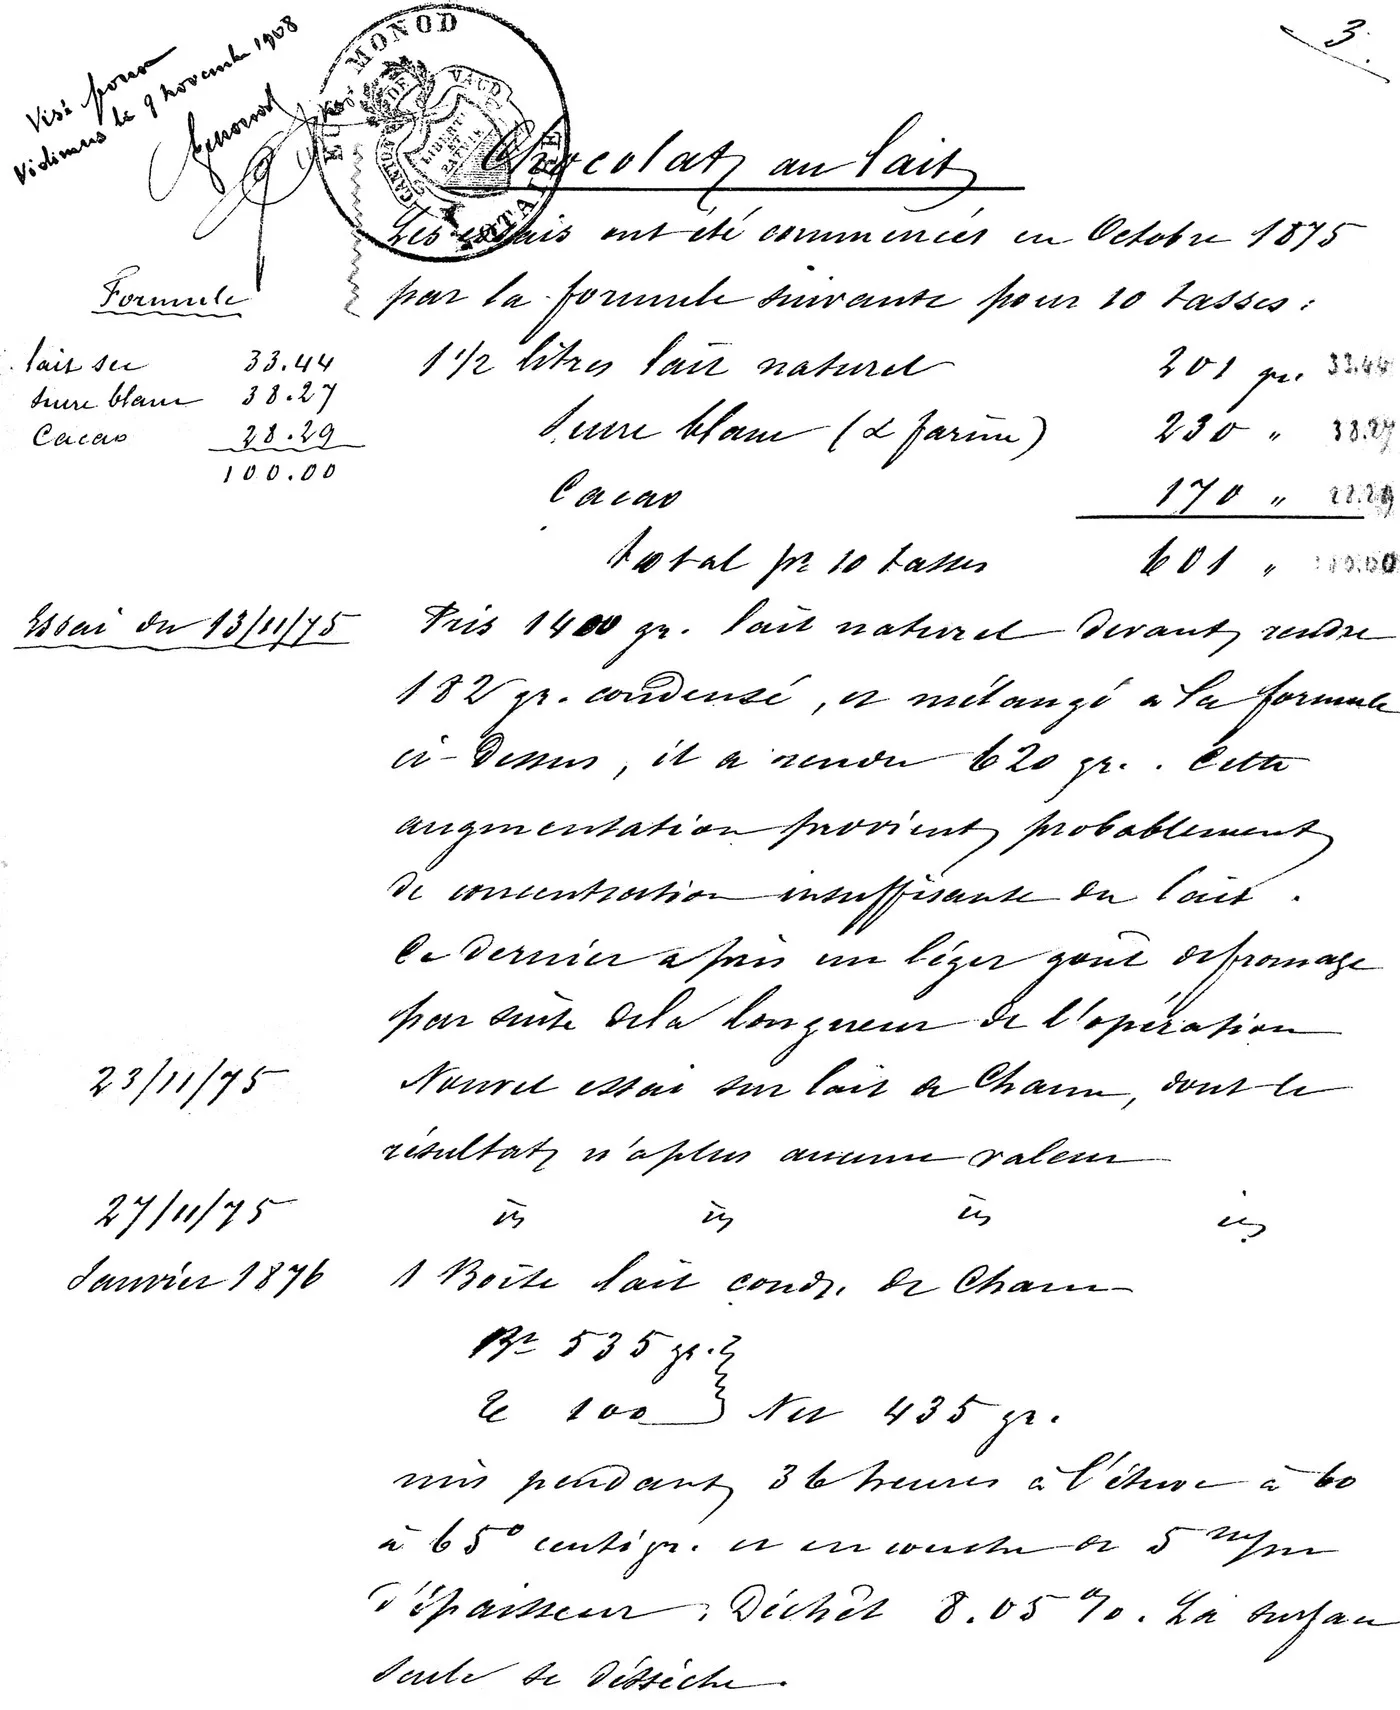 3.
Visé pour
Vidimus le 9 novembre 1908
EMonod
MONOD
NOTAIRE
CANTON DE VAUD
LIBERTÉ
ET
PATRIE
Chocolat au lait
Les essais ont été commencés en Octobre 1875
par la formule suivante pour 10 tasses :
Formule
lait sec 33.44
sucre blanc 38.27
Cacao 28.29
100.00
1 1/2 litres lait naturel 201 gr. 33.44
Sucre blanc (& farine) 230 " 38.27
Cacao 170 " 28.29
total pr 10 tasses 601 " 100.00
Essai du 13/11/75 Pris 1400 gr. lait naturel devant rendre
182 gr. condensé, et mélangé à la formule
ci-dessus, il a rendu 620 gr. . Cette
augmentation provient probablement
de concentration insuffisante du lait .
Ce dernier a pris un léger goût de fromage
par suite de la longueur de l'opération
23/11/75 Nouvel essai sur lait de Cham, dont le
résultat n'a plus aucune valeur
27/11/75 is is is is
Janvier 1876 1 Boîte lait cond. de Cham
Bt 535 gr.
Te 100 } Net 435 gr.
mis pendant 36 heures à l'étuve à 60
à 65° centigr. et en couche de 5 m/m
d'épaisseur . Déchêt 8.05 %. La surface
seule se dessèche .